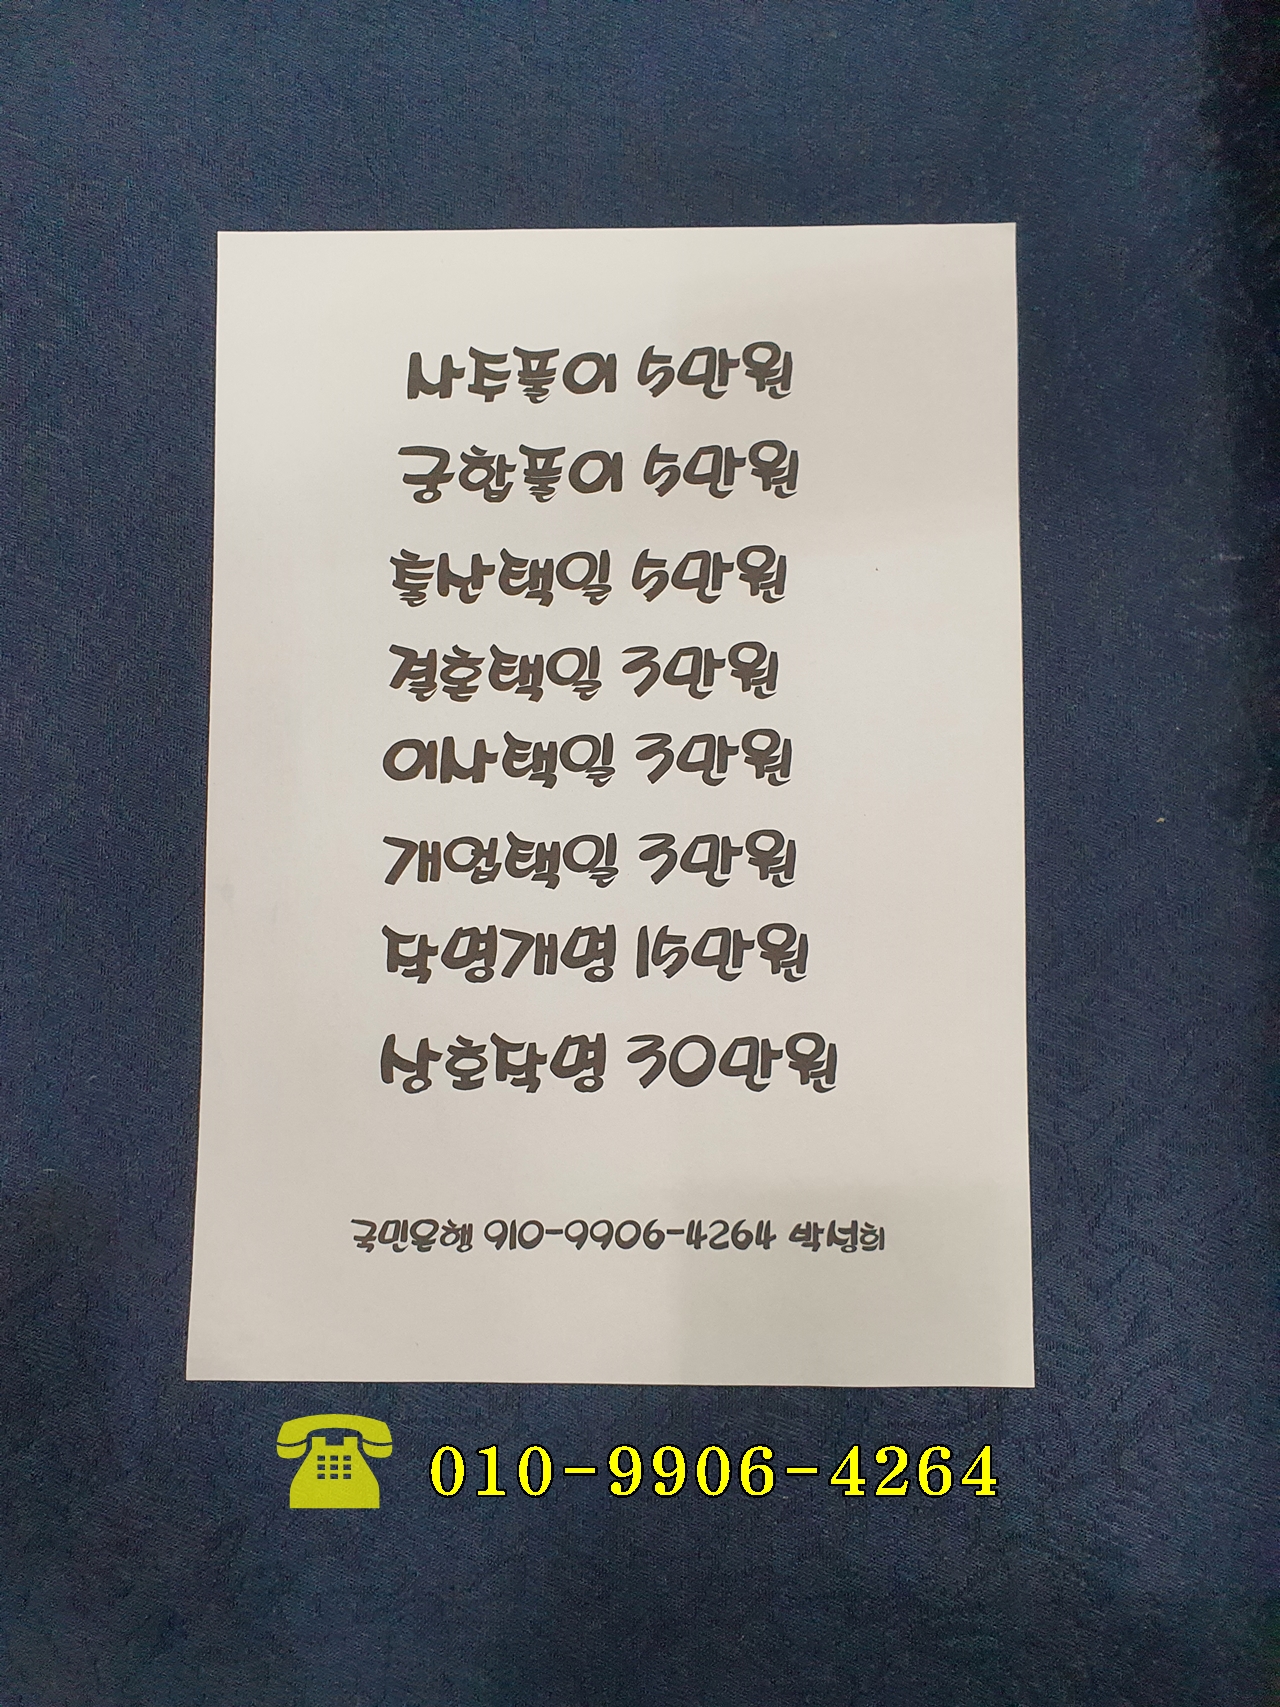 사주풀이 5만원
궁합풀이 5만원
출산택일 5만원
결혼택일 3만원
이사택일 3만원
개업택일 3만원
작명개명 15만원
상호작명 30만원
국민은행 910-9906-4264 박성희
010-9906-4264